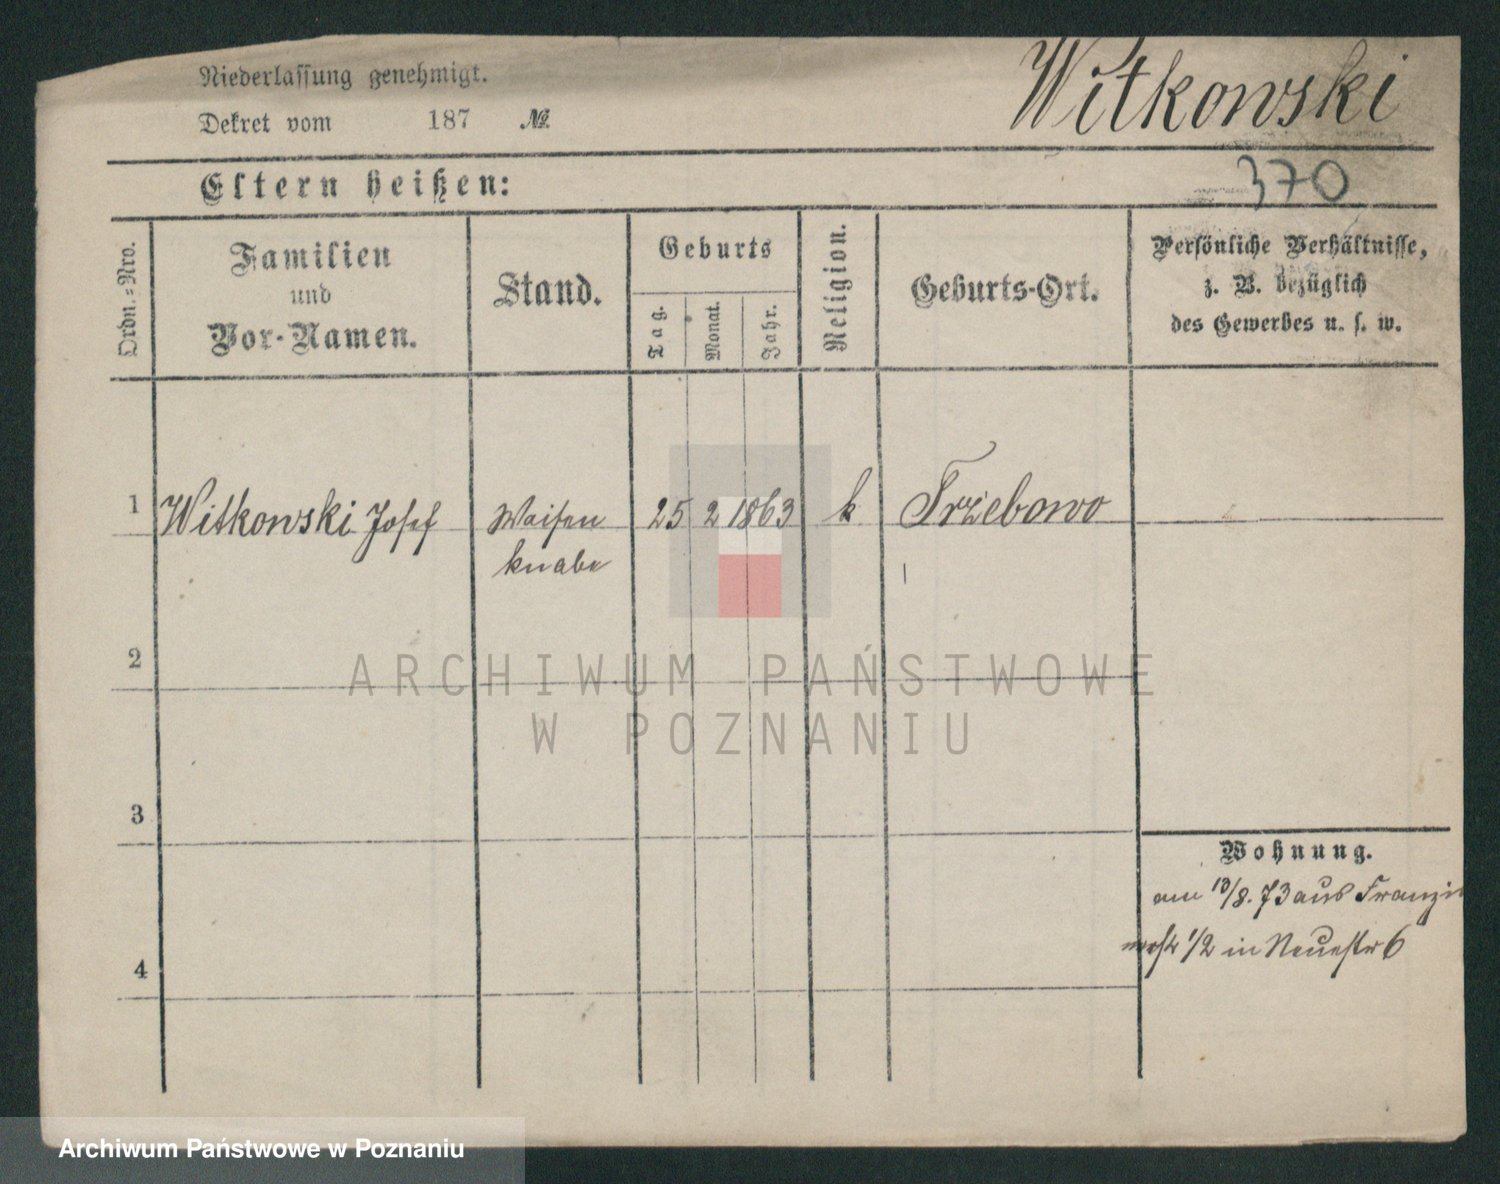 Niederlassung genehmigt.
Dekret vom 187 №
Witkowski
370
Eltern heißen:
Ordn.-Nro.
Familien
und
Vor-Namen.
Stand.
Geburts
Tag.
Monat.
Jahr.
Religion.
Geburts-Ort.
Persönliche Verhältnisse,
z. B. bezüglich
des Gewerbes u. s. w.
1 Witkowski Josef Waisen 25 2 1863 k Trzebowo
knabe
2
3
4
Wohnung.
am /8. 73 aus
1/2 in Neuestr 6
ARCHIWUM PAŃSTWOWE
W POZNANIU
Archiwum Państwowe w Poznaniu